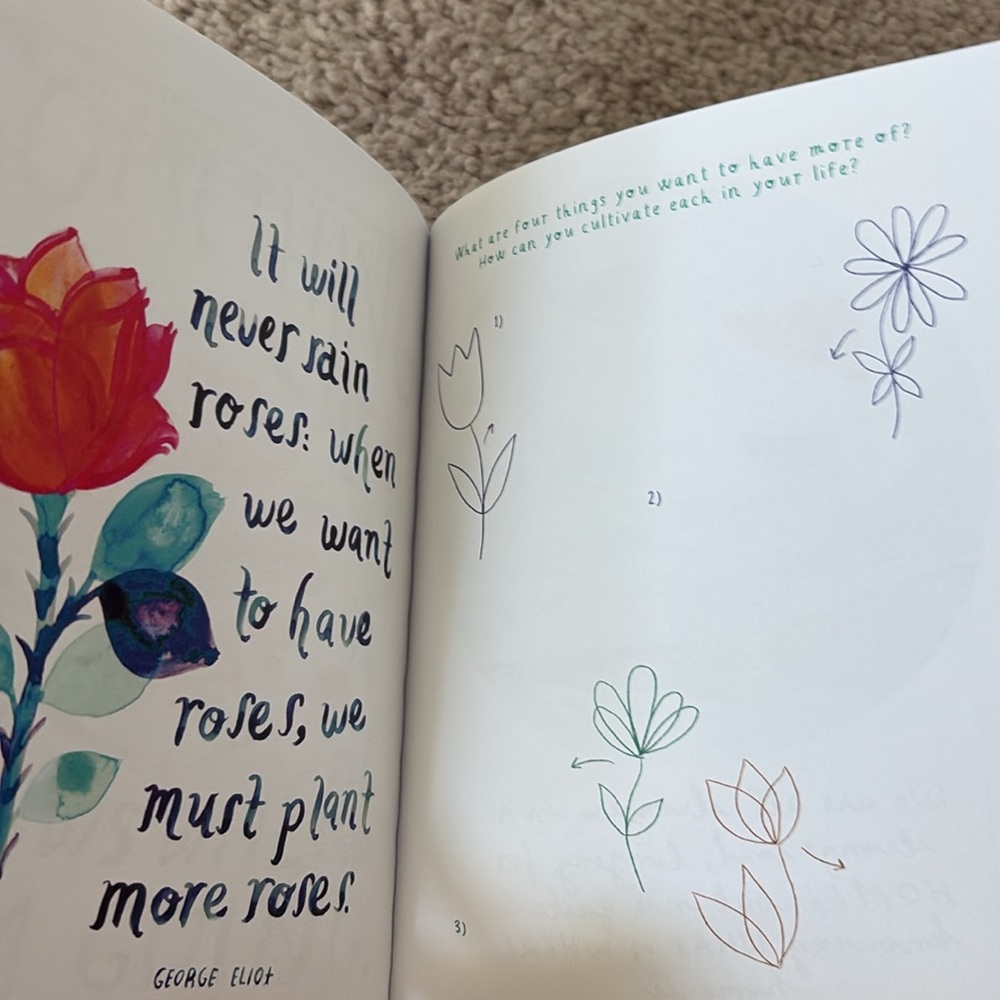 It will
never rain
roses: when
we want
to have
roses, we
must plant
more roses.
GEORGE ELIOT
What are four things you want to have more of?
How can you cultivate each in your life?
1)
2)
3)